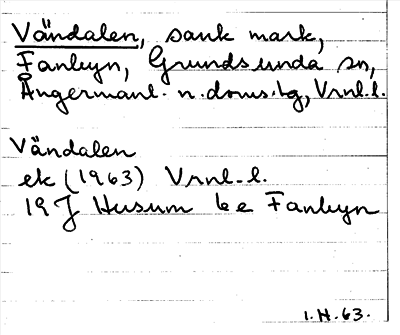 Vändalen, sank mark,
Fanbyn, Grundsunda sn,
Ångermanl. n. doms.bg, Vrnl.l.
Vändalen
ek (1963) Vrnl-l.
19J Husum be Fanbyn
1.H.63.